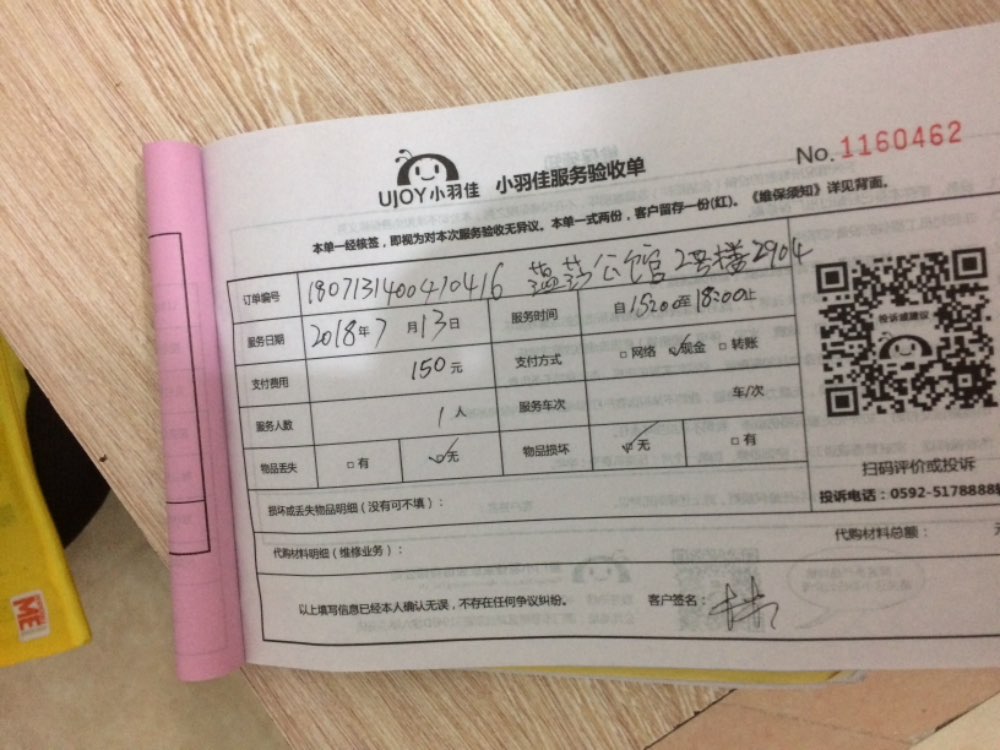 No. 1160462
UJOY小羽佳 小羽佳服务验收单
本单一经核签，即视为对本次服务验收无异议。本单一式两份，客户留存一份(红)。《维保须知》详见背面。
订单编号 180713140041 0416 蓝莎公馆2号楼2904
服务日期 2018年7月13日 服务时间 自15:00至18:00止
支付费用 150元 支付方式 □网络 ☑现金 □转账
服务人数 1人 服务车次 车/次
物品丢失 □有 ☑无 物品损坏 ☑无 □有
投诉或建议
扫码评价或投诉
投诉电话：0592-5178888
损坏或丢失物品明细（没有可不填）：
代购材料明细（维修业务）： 代购材料总额：
以上填写信息已经本人确认无误，不存在任何争议纠纷。 客户签名：
ME